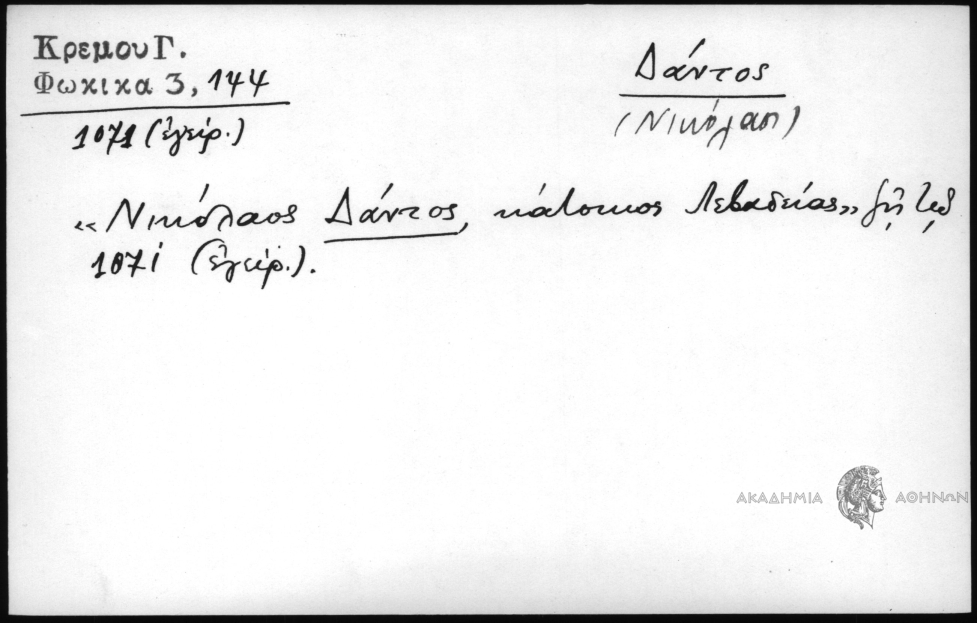 Κρεμου Γ.
Φωκικα 3, 144
1071 (ἐγείρ.)
Δάντος
(Νικόλαος)
«Νικόλαος Δάντος, κάτοικος Λεβαδείας» ζῇ τῷ
1071 (ἐγείρ.).
ΑΚΑΔΗΜΙΑ ΑΘΗΝΩΝ